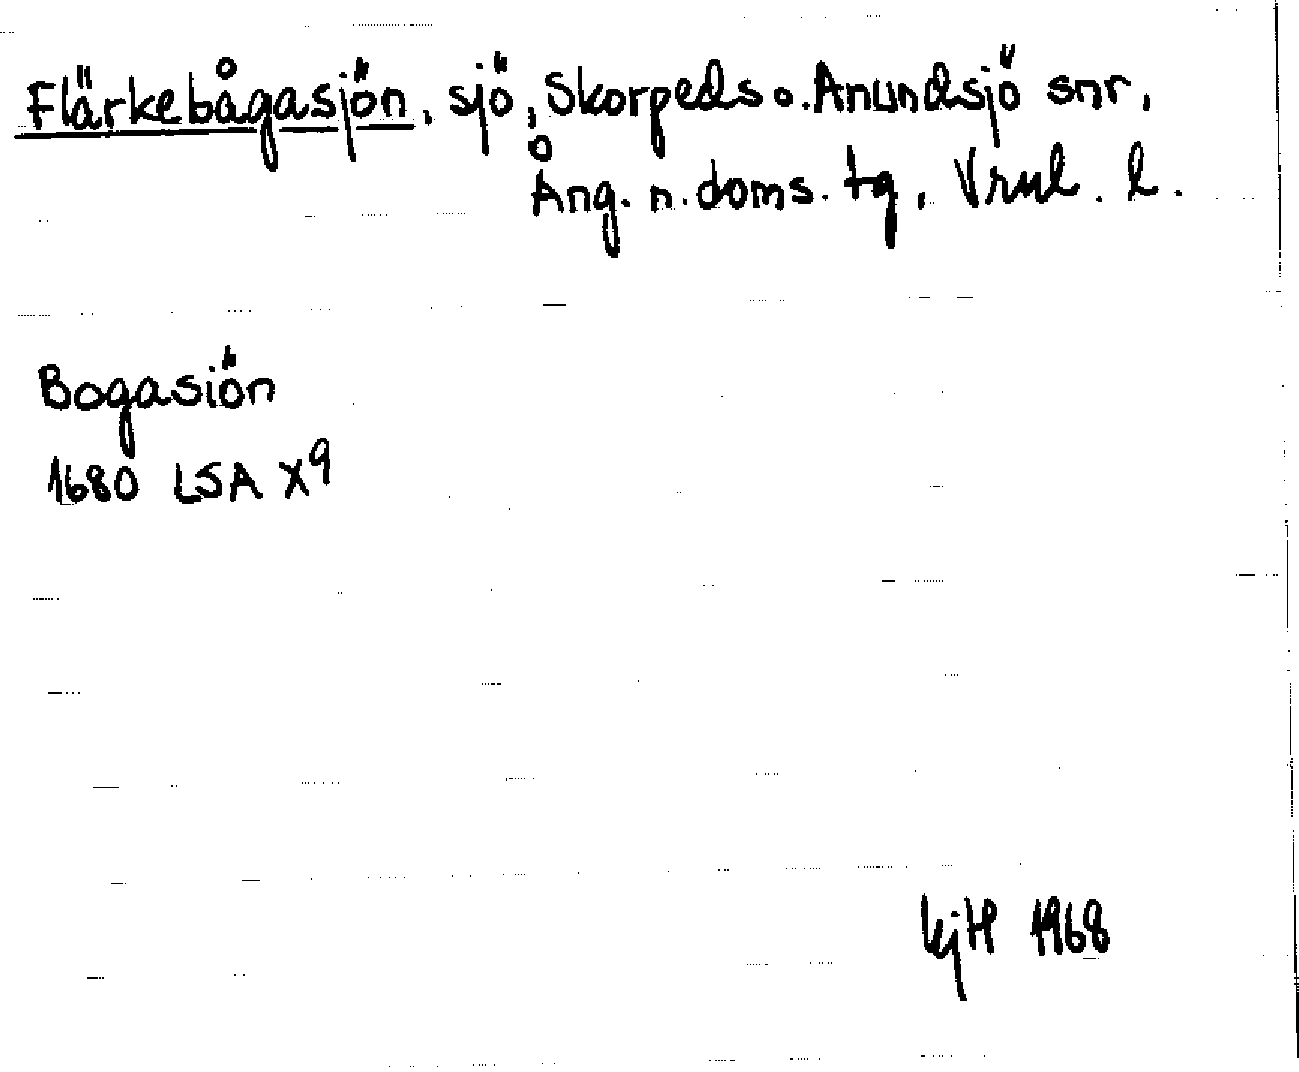 Flärkebågasjön, sjö, Skorpeds o. Anundsjö snr,
Ång. n. doms. tg, Vrnl. l.
Bogasiön
1680 LSA X9
1968